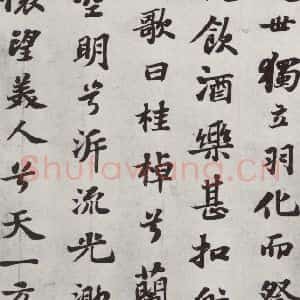 世獨立羽化而
飲酒樂甚扣
歌曰桂棹兮蘭
空明兮泝流光
望美人兮天一方
Shufawang.CN